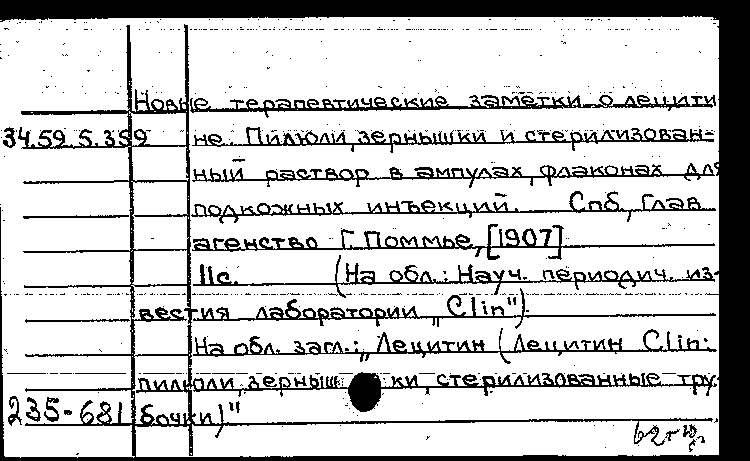 Новые терапевтические заметки о лецити
34.59.5.359 не. Пилюли, зернышки и стерилизован=
ный раствор в ампулах, флаконах для
подкожных инъекций. Спб., Глав.
агенство Г. Поммье, [1907]
11с. (На обл.: Науч. периодич. из-
вестия лаборатории „Clin")
На обл. загл.: „Лецитин (Лецитин Clin:
пилюли, зернышки, стерилизованные тру-
235-681 бочки)"